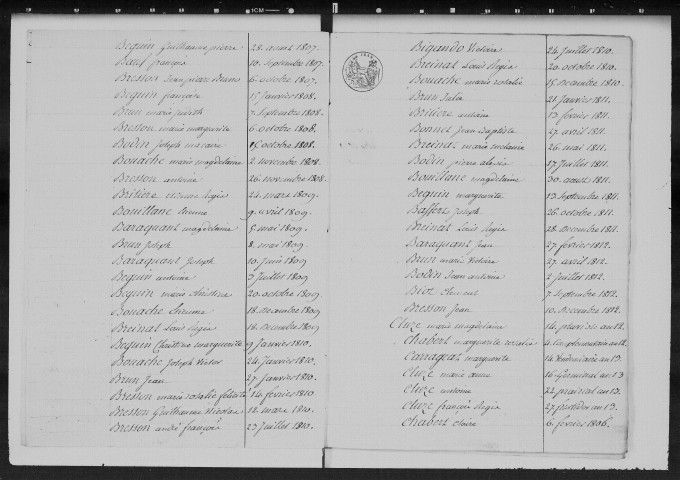 Beguin Guillaume pierre 28. aout 1807.
Bauf françois 10. Septembre 1807.
Bresson Jean pierre Bruno 6. octobre 1807.
Beguin françoise 15 Janvier 1808.
Brun marie Judith 7. Septembre 1808.
Bresson marie marguerite 6 octobre 1808.
Bodin Joseph macaire 15 octobre 1808.
Bouache marie magdelaine 2. novembre 1808.
Bresson antoine 26. novembre 1808.
Briliere Regis 24. mars 1809.
Bouillanc Etienne 9. avril 1809.
Baraquant magdelaine 5. mai 1809.
Brun Joseph 8. mai 1809.
Baraquant Joseph 10. Juin 1809
Beguin antoine 3 Juillet 1809
Beguin marie christine 20. octobre 1809
Bouache Etienne 18. decembre 1809
Breinat Louis Regis 18. decembre 1809.
Beguin Christine marguerite 9 Janvier 1810.
Bouache Joseph Victor 24. Janvier 1810.
Brun Jean 27. Janvier 1810.
Bresson marie rosalie felicité 14 fevrier 1810
Bresson Guillaume Nicolas 12 mars 1810.
Bresson andré françois 23 Juillet 1810.
Bigando Victoire 24. Juillet 1810.
Breinat Louis Regis 20. octobre 1810.
Bouache marie rosalie 15. Decembre 1810.
Brun Julie 21 Janvier 1811.
Briliere antoine 13 fevrier 1811.
Bonnet Jean Baptiste 27. avril 1811.
Breinat marie melanie 26. mai 1811.
Bodin pierre alexis 17 Juillet 1811.
Bouillanc magdelaine 30. aout 1811.
Beguin marguerite 13. Septembre 1811.
Baffert Joseph 26. octobre 1811.
Breinat Louis Regis 28. decembre 1811.
Baraquant Jean 27. fevrier 1812.
Brun marie Victoire 27. avril 1812.
Bodin Jean antoine 2 Juillet 1812.
Biot Clement 7. Septembre 1812.
Bresson Jean 10. Decembre 1812.
Cluze marie magdelaine 14. an 12.
Chabert marguerite rosalie 4. Complementaire an 12.
Canaquat marguerite 14. Vendemiaire an 13.
Cluze marie anne 16. Germinal an 13.
Cluze antoine 22 prairial an 13.
Cluze françois Regis 27. an 13.
Chabert Claire 6. fevrier 1806.